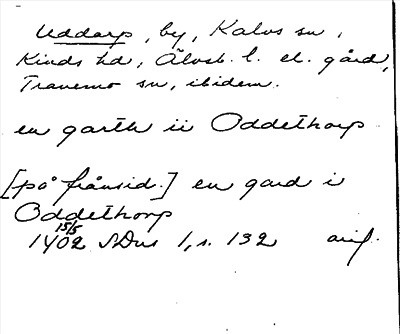 Uddarp, by, Kalvs sn,
Kinds hd, Älvsb. l. el. gård,
Tranemo sn, ibidem.
en garth ii Oddethorp
[på frånsid.] en gard i
Oddethorp
15/5
1402 SDns 1, s. 132 avs.